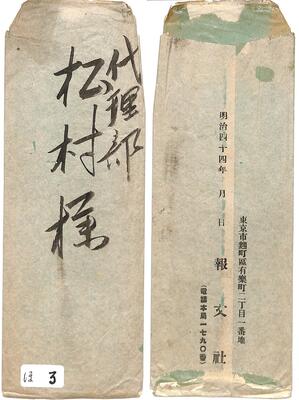 代理部
松村様
ほ 3
東京市麹町區有樂町二丁目一番地
明治四十四年 月 日
報文社
(電話本局一七九〇番)